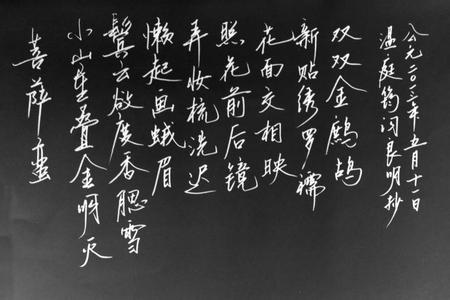 菩萨蛮
小山重叠金明灭
鬓云欲度香腮雪
懒起画蛾眉
弄妆梳洗迟
照花前后镜
花面交相映
新贴绣罗襦
双双金鹧鸪
温庭筠闵良明抄
公元二〇一三年五月十一日